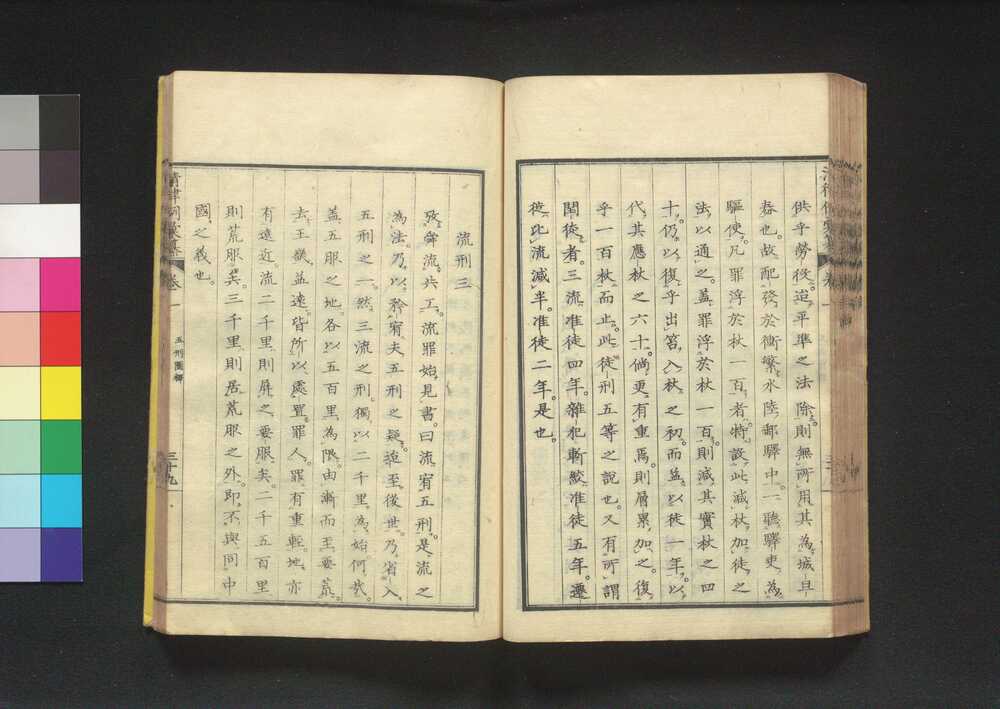 供乎勞役。迨平準之法除。則無所用其為城旦
舂也。故配發於衝繁水陸郵驛中。一聽驛吏為
驅使。凡罪浮於杖一百者。特設此減杖加徒之
法以通之。蓋罪浮於杖一百。則減其實杖之四
十。仍以復乎出笞入杖之初。而益以徒一年。以
代其應杖之六十。倘更有重焉。則層累加之。復
乎一百杖而止。此徒刑五等之說也。又有所謂
閏徒者。三流准徒四年。雜犯斬絞准徒五年。遷
徙比流減半。准徒二年。是也。
流刑三
攷舜流共工。流罪始見書。曰流宥五刑。是流之
為法。乃以矜宥夫五刑之疑。迨至後世。乃省入
五刑之一。然三流之刑。獨以二千里為始。何哉。
蓋五服之地。各以五百里為限。由漸而至要荒。
去王畿益遠。皆所以處置罪人。罪有重輕。地亦
有遠近。流二千里。則屏之要服矣。二千五百里
則荒服矣。三千里。則居荒服之外。即不與同中
國之義也。
卷一
五刑圖釋
三十九